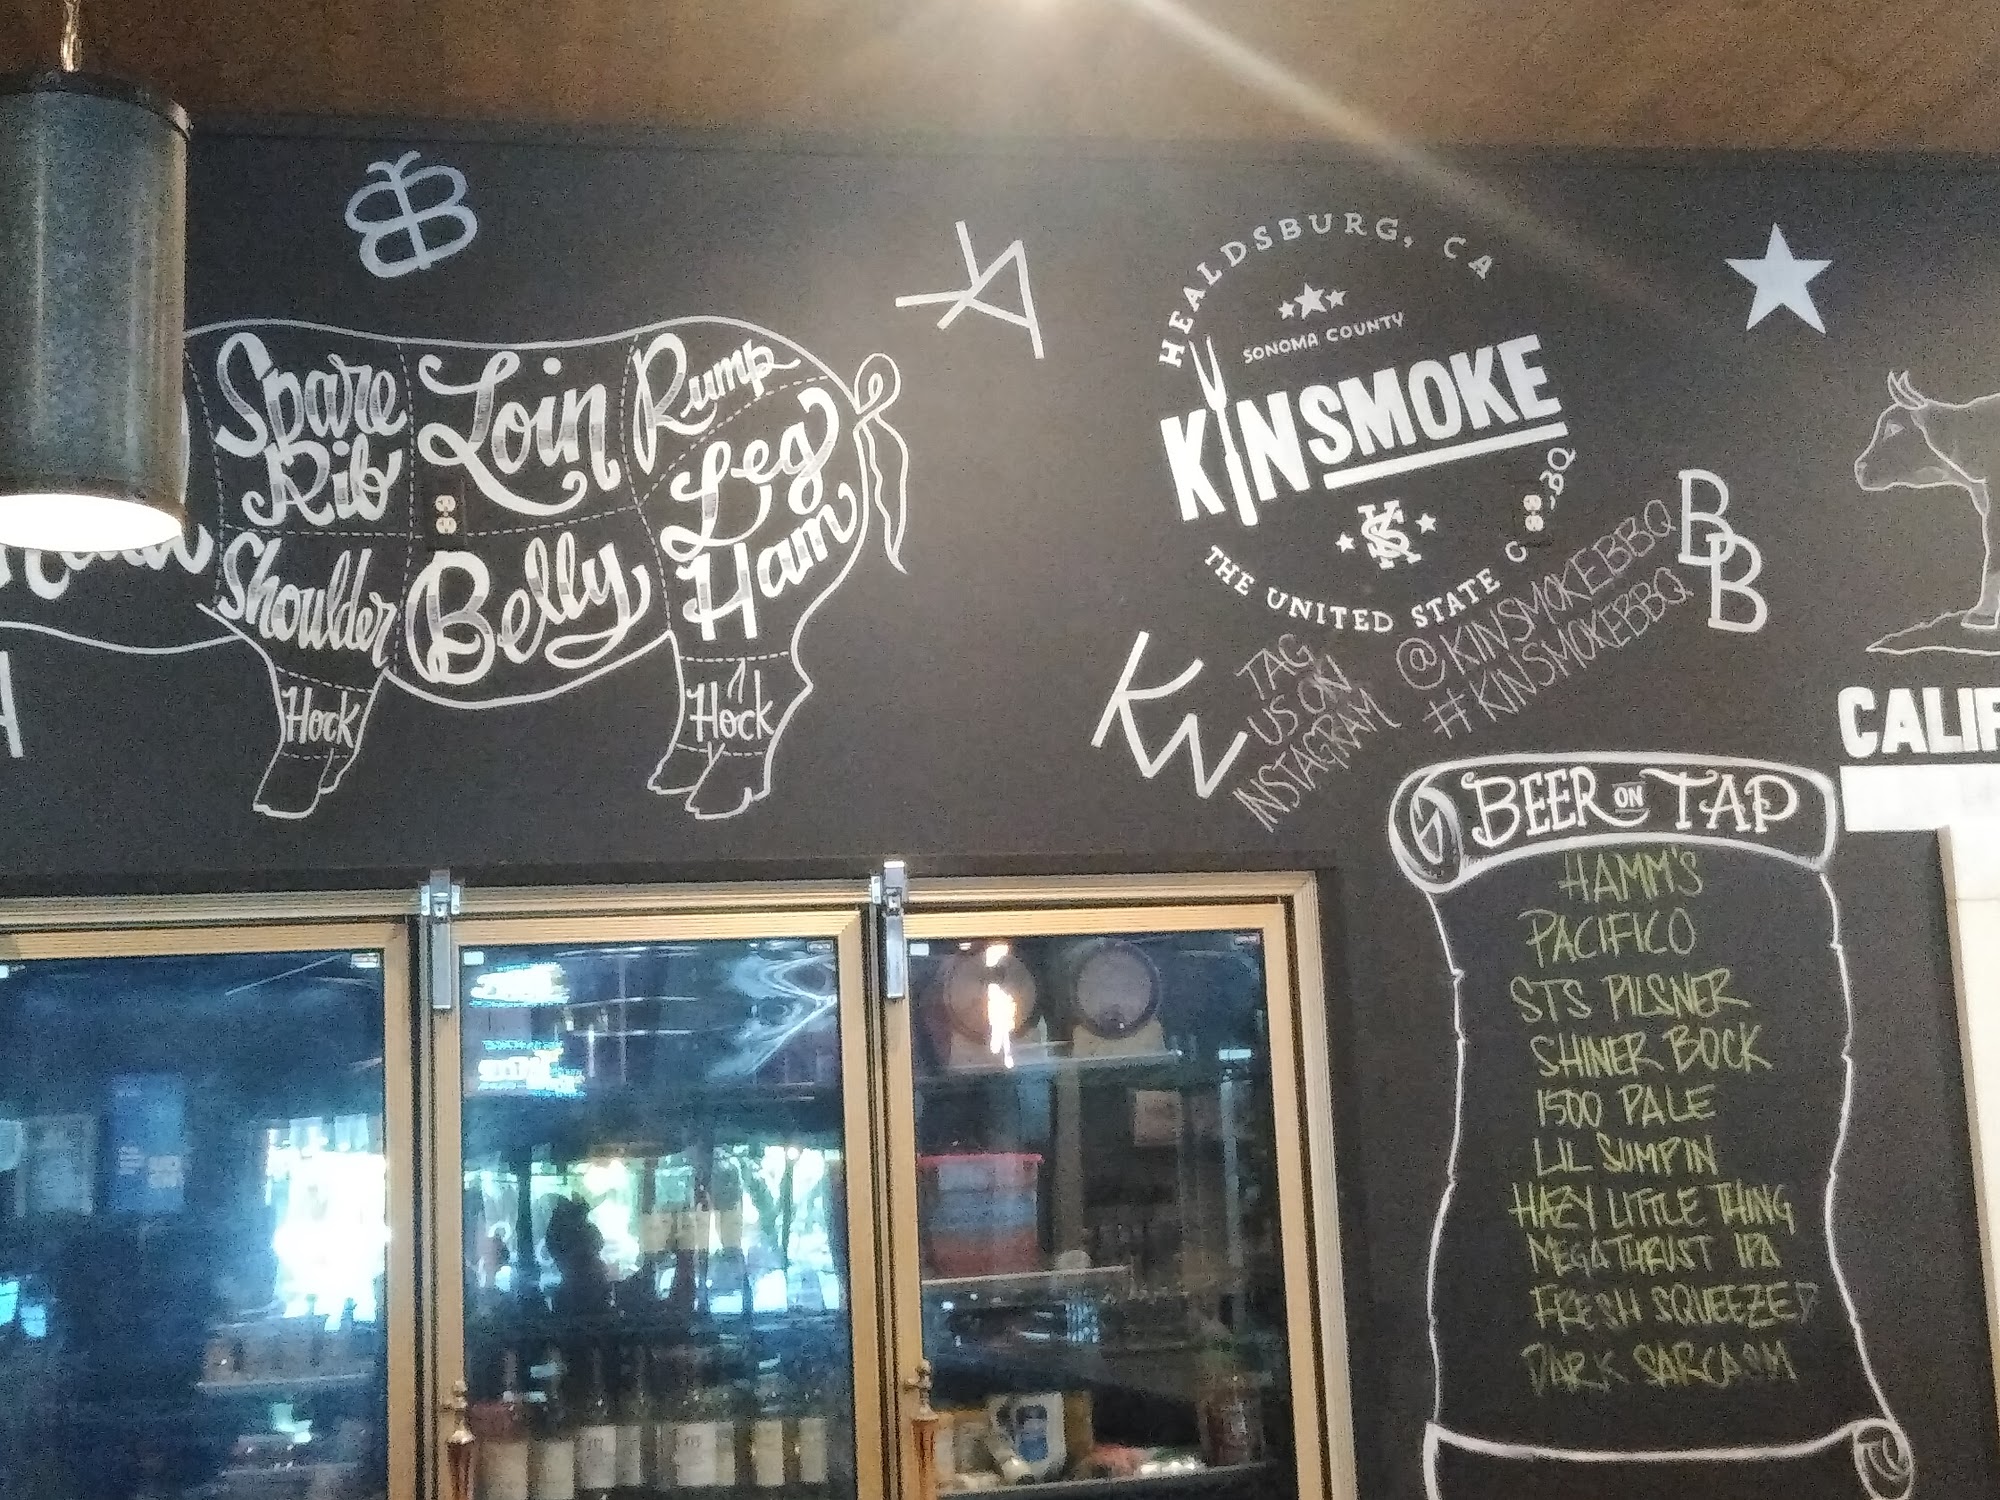 Spare
Rib
Loin
Rump
Leg
Ham
Shoulder
Belly
Hock
Hock
HEALDSBURG, CA
SONOMA COUNTY
KINSMOKE
KS
THE UNITED STATE
BQ
TAG
US ON
INSTAGRAM
@KINSMOKEBBQ
#KINSMOKEBBQ
KN
BB
CALIF
BEER ON TAP
HAMM'S
PACIFICO
STS PILSNER
SHINER BOCK
1500 PALE
LIL SUMPIN
HAZY LITTLE THING
MEGATHRUST IPA
FRESH SQUEEZED
DARK SARCASM